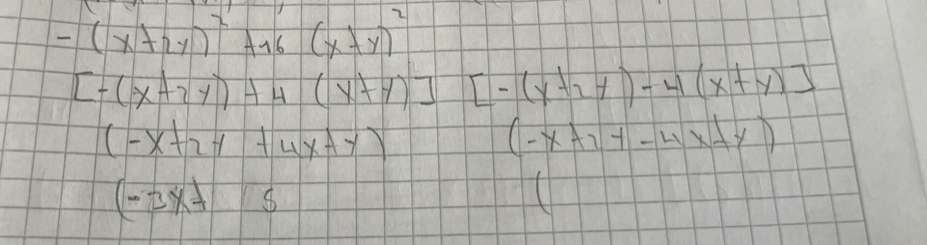 - (x+2y)² +16 (x+y)²
[-(x+2y)+4 (x+y)] [-(x+2y)-4(x+y)]
(-x+2y +4x+y) (-x+2y-4x+y)
(-3x+ 5 (